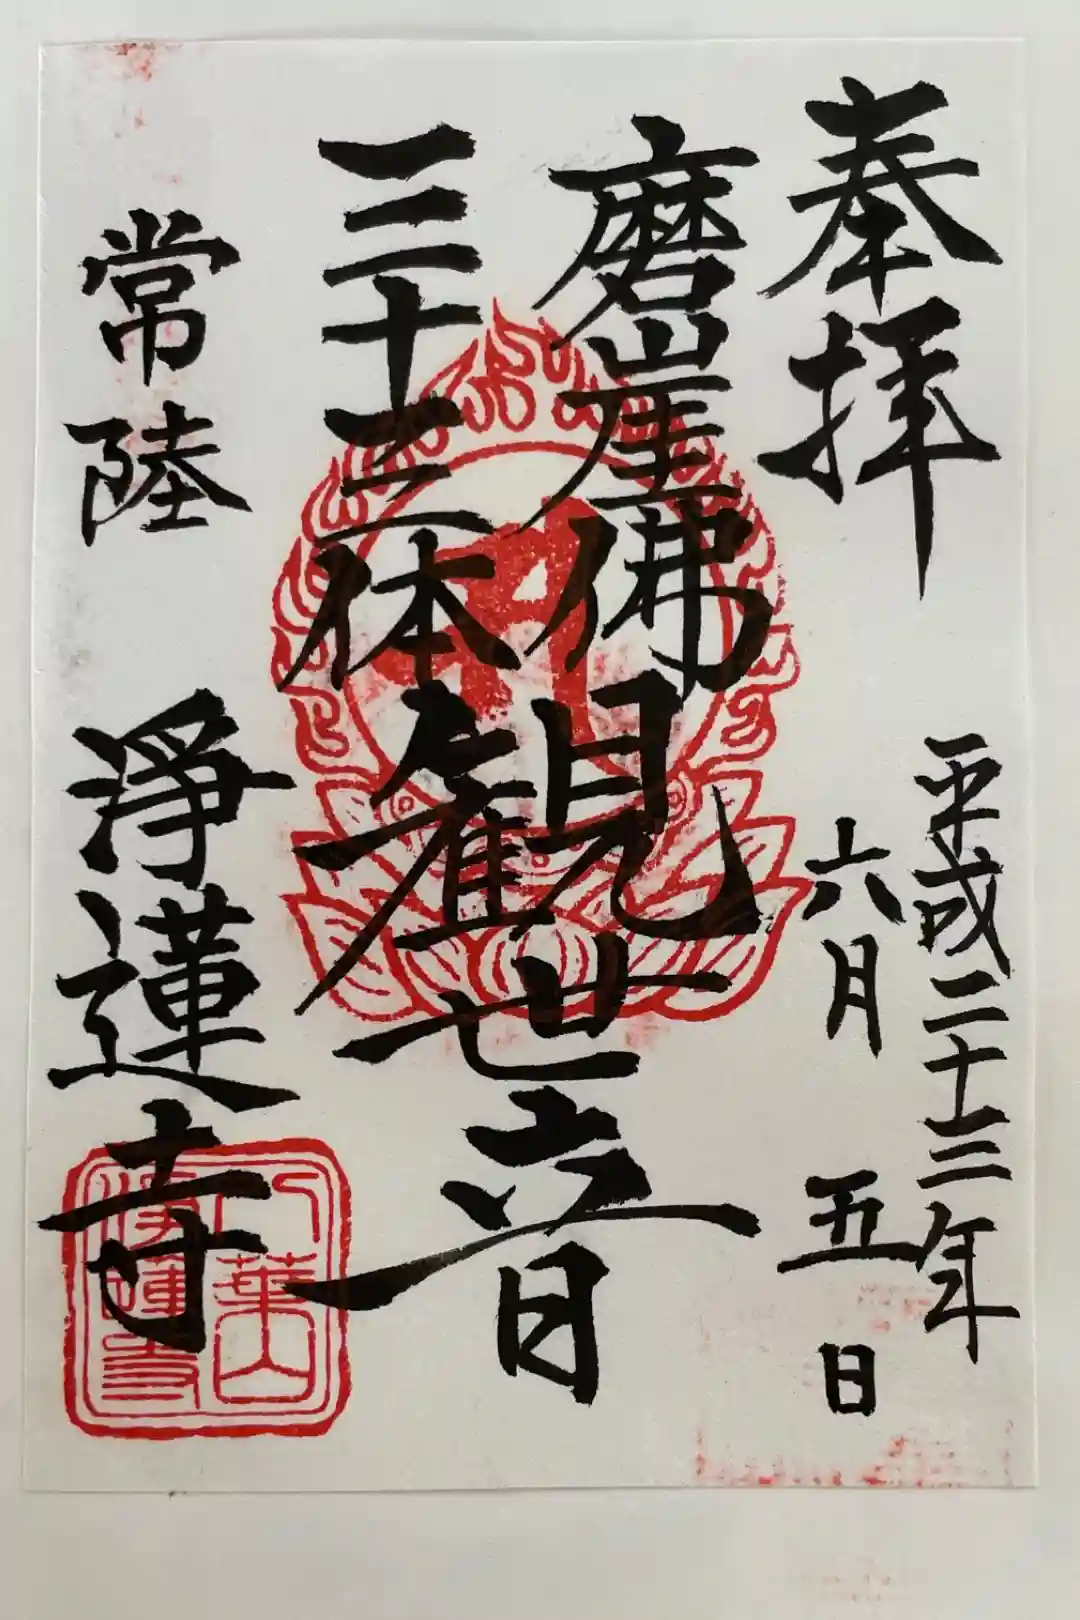 奉拝
平成二十三年
六月五日
磨崖佛
三十三体
観世音
常陸 淨蓮寺